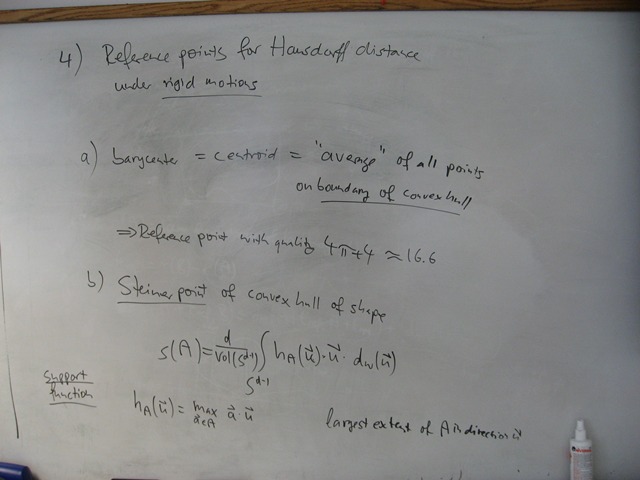 4) Reference points for Hausdorff distance
under rigid motions
a) barycenter = centroid = "average" of all points
on boundary of convex hull
⇒ Reference point with quality 4π+4 ≈ 16.6
b) Steiner point of convex hull of shape
s(A) = d/vol(S^{d-1}) ∫_{S^{d-1}} h_A(u⃗)·u⃗·dω(u⃗)
support
function
h_A(u⃗) = max_{a⃗∈A} a⃗·u⃗
largest extent of A in direction u⃗